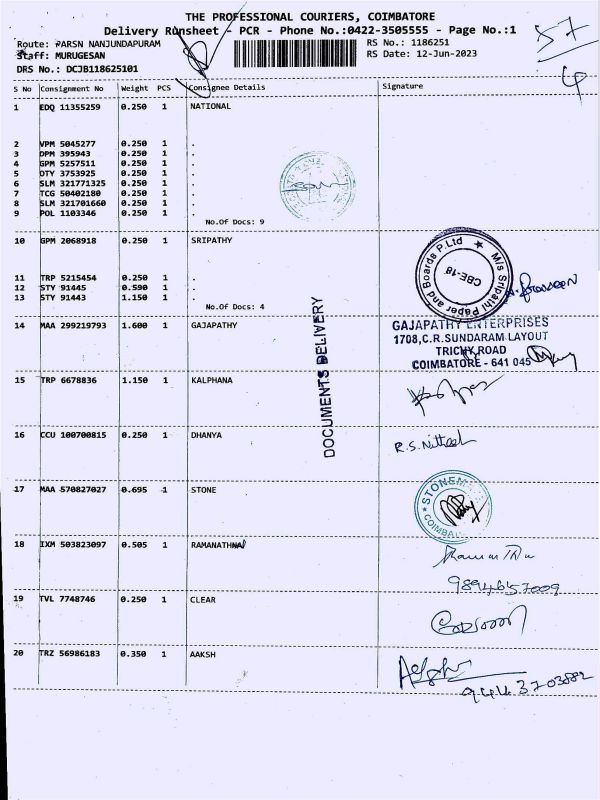 THE PROFESSIONAL COURIERS, COIMBATORE
Delivery Runsheet - PCR - Phone No.:0422-3505555 - Page No.:1
Route: PARSN NANJUNDAPURAM
RS No.: 1186251
Staff: MURUGESAN
RS Date: 12-Jun-2023
DRS No.: DCJB118625101
57
S No Consignment No Weight PCS Consignee Details Signature
1 EDQ 11355259 0.250 1 NATIONAL
2 VPM 5045277 0.250 1 .
3 DPM 395943 0.250 1 .
4 GPM 5257511 0.250 1 .
5 DTY 3753925 0.250 1 .
6 SLM 321771325 0.250 1 .
7 TCG 50402180 0.250 1 .
8 SLM 321701660 0.250 1 .
9 POL 1103346 0.250 1 .
No.Of Docs: 9
10 GPM 2068918 0.250 1 SRIPATHY
M/s Sripathi Paper and Boards P.Ltd
CBE-18
11 TRP 5215454 0.250 1 .
12 STY 91445 0.590 1 .
13 STY 91443 1.150 1 .
No.Of Docs: 4
DOCUMENTS DELIVERY
14 MAA 299219793 1.600 1 GAJAPATHY
GAJAPATHY ENTERPRISES
1708,C.R.SUNDARAM LAYOUT
TRICHY ROAD
COIMBATORE - 641 045
15 TRP 6678836 1.150 1 KALPHANA
16 CCU 100700815 0.250 1 DHANYA
R.S.Nitheesh
17 MAA 570827027 0.695 1 STONE
18 IXM 503823097 0.505 1 RAMANATHNA
9894657009
19 TVL 7748746 0.250 1 CLEAR
20 TRZ 56986183 0.350 1 AAKSH
9443703882